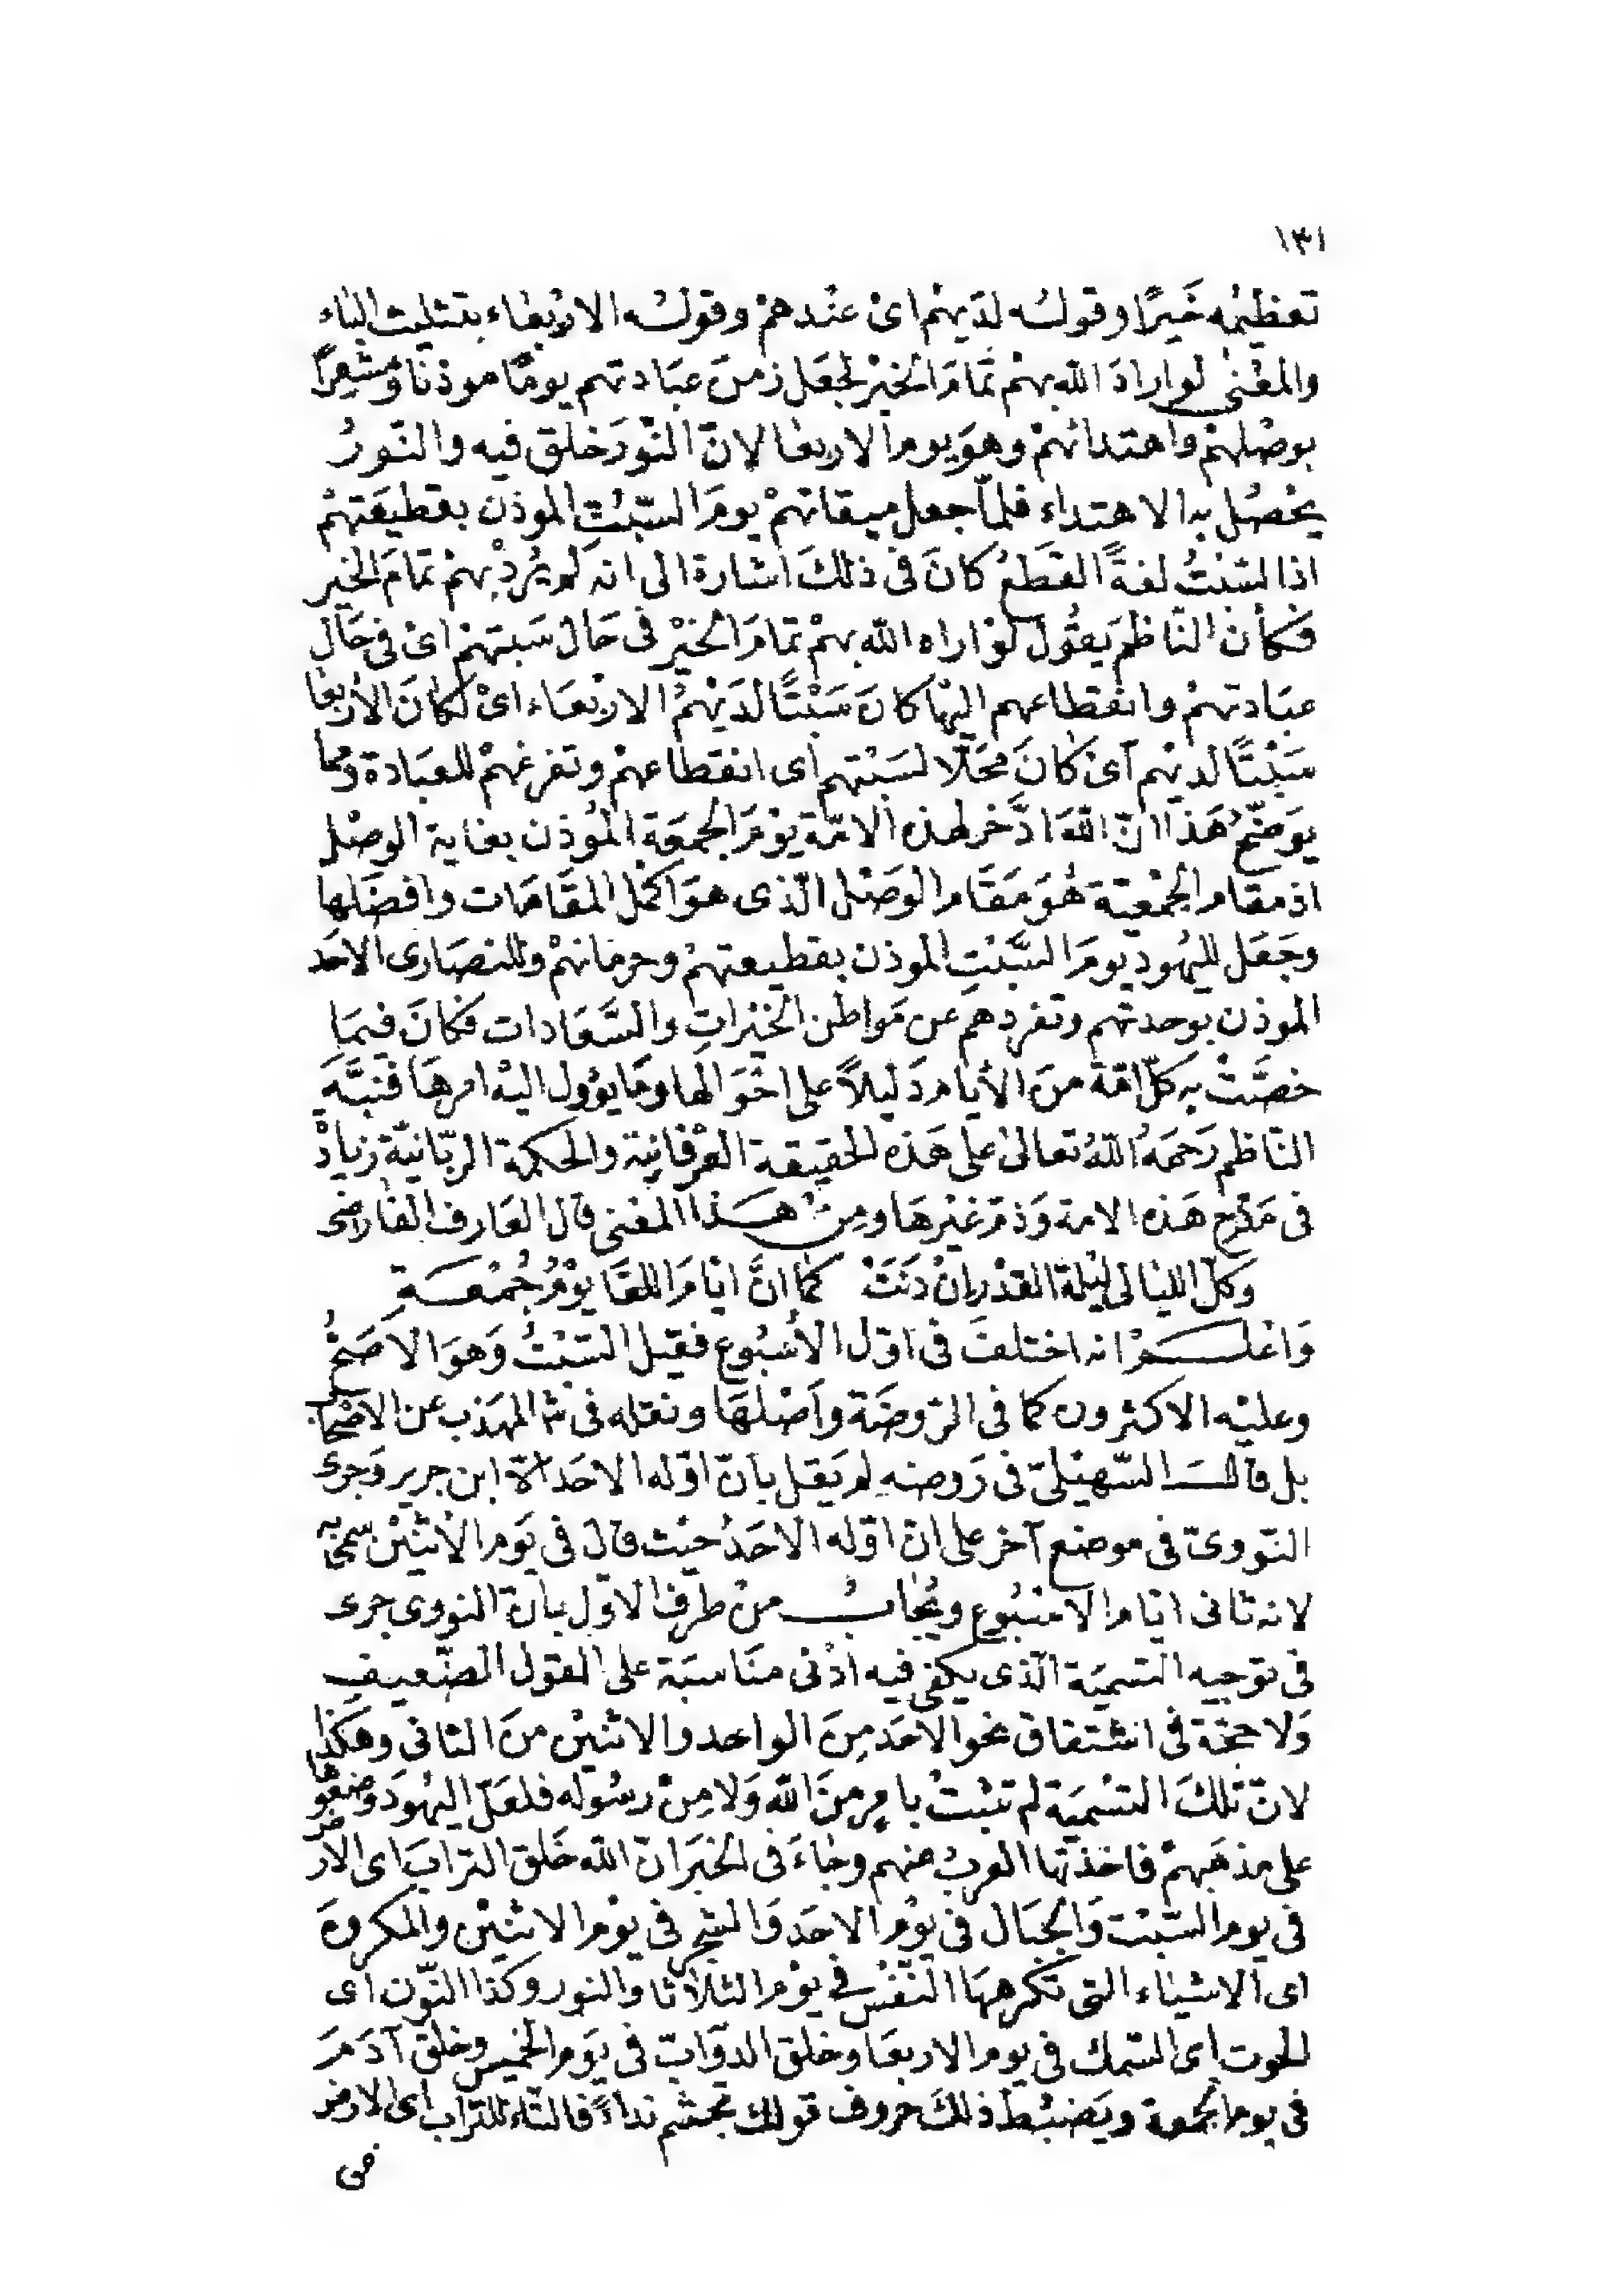 ١٣١
تعظيمُه خَيرًا وقولُه لدَيهمْ اىْ عنْدهمْ وقولُه الاربعاء بتثليث الباء
والمعْنى لو ارادَ الله بهمْ تمامَ الخيْر لجعَل زمنَ عبَادتهم يومًا موذنًا ومشْعِرًا
بوصْلهمْ واهتدائهمْ وهوَ يوم الاربعا لانّ النّورَ خلق فيه والنّورُ
يحْصُل به الاهتداء فلمّا جعل ميقاتهمْ يومَ السّبْتِ الموذن بقطيعَتهمْ
اذ السّبْتُ لغةً القطْعُ كانَ فى ذلكَ اشارة الى انه لم يُردْ بهمْ تمامَ الخير
فكأن النّاظم يقُول لوْ اراد الله بهمْ تمامَ الخيْر فى حَال سَبتهمْ اىْ فى حَال
عبَادتهمْ وانقطاعهم اليْها كانَ سَبْتًا لدَيْهمُ الارْبعَاء اىْ لكانَ الأربعَا
سَبْتًا لديْهم اىْ كانَ محَلّا لسَبْتهم اى انقطاعهمْ وتفرغهمْ للعبَادة ومما
يوَضّحُ هَذا انّ اللهَ ادَّخر لهذه الامّة يوْمَ الجمعَة المُوذن بغاية الوصْل
اذ مقام الجمْعيّة هُوَ مَقَام الوَصْل الّذى هوَ اكمَل المقَامَات وافضَلها
وجَعَل لليَهُود يومَ السَّبْتِ الموذن بقطيعتهمْ وحرمَانهمْ وللنصَارى الاحَد
الموذن بوحدتهم وتفردهم عن مَواطن الخيْراتِ والسَّعَادات فكانَ فيمَا
خصَّتْ به كلّ امّة منَ الأيام دَليلاً على احْوَالها ومَا يؤول اليْه امرهَا فنبَّهَ
النّاظم رَحمَهُ اللهُ تعالى على هَذه الحقيقة العرْفانيّة والحكمة الربّانيّة زيادةْ
فى مَدْح هَذه الامة وَذمّ غيْرهَا ومِنْ هَذا المعْنى قال العَارف الفارضى
وَكلّ الليَالى ليْلة القدْر انْ دَنَتْ كما انَّ ايّامَ اللقَا يوْمُ جُمْعَةِ
وَاعْلمْ انه اختلفَ فى اوّل الأسْبُوع فقيل السّبْتُ وَهوَ الاصَحُّ
وعليْه الاكثرون كما فى الرّوضَة وأصْلهَا ونقله فى شرْ المهذب عن الاصْحاب
بل قالَ السّهيْلىّ فى رَوضه لم يَقل بانّ اوّله الاحَد الّا ابن جرير وَجرى
النّووىّ فى موضع آخر على انّ اوّله الاحَدُ حيْث قال فى يَوم الاثنَيْن سمّى به
لانه ثانى ايّام الاسْبُوع ويُجابُ منْ طرف الاوّل بانّ النووى جرى
فى توجيه التسميَة الّذى يكفى فيه ادْنى منَاسبَة على القول الضّعيف
وَلا حجّة فى اشتقاق نحو الاحَد مِنَ الواحد والاثنيْن منَ الثانى وهَكذا
لانّ تلكَ التسْميَة لم تثبتْ بامر منَ الله وَلا مِنْ رسُوله فلعَلّ اليهُودَ وضعُوها
على مذهَبهمْ فاخذتها العربُ منهم وجَاءَ فى الخبَر انّ اللهَ خَلق الترابَ اى الارض
فى يوم السّبْت وَالجبَال فى يوْم الاحَد وَالشجر فى يوْم الاثنيْن والمكروهَ
اى الاشيَاء التى تكرههَا النّفْس فى يوْم الثلاثا والنور وكذا النّون اى
الحوت اى السّمك فى يوم الاربعَا وخلق الدوَابّ فى يَوم الخميس وخلق آدَمَ
فى يوم الجمعة ويَضبْط ذلكَ حروف قولك تجشم نداءً فالتّاء للترَاب اى الارض
فى